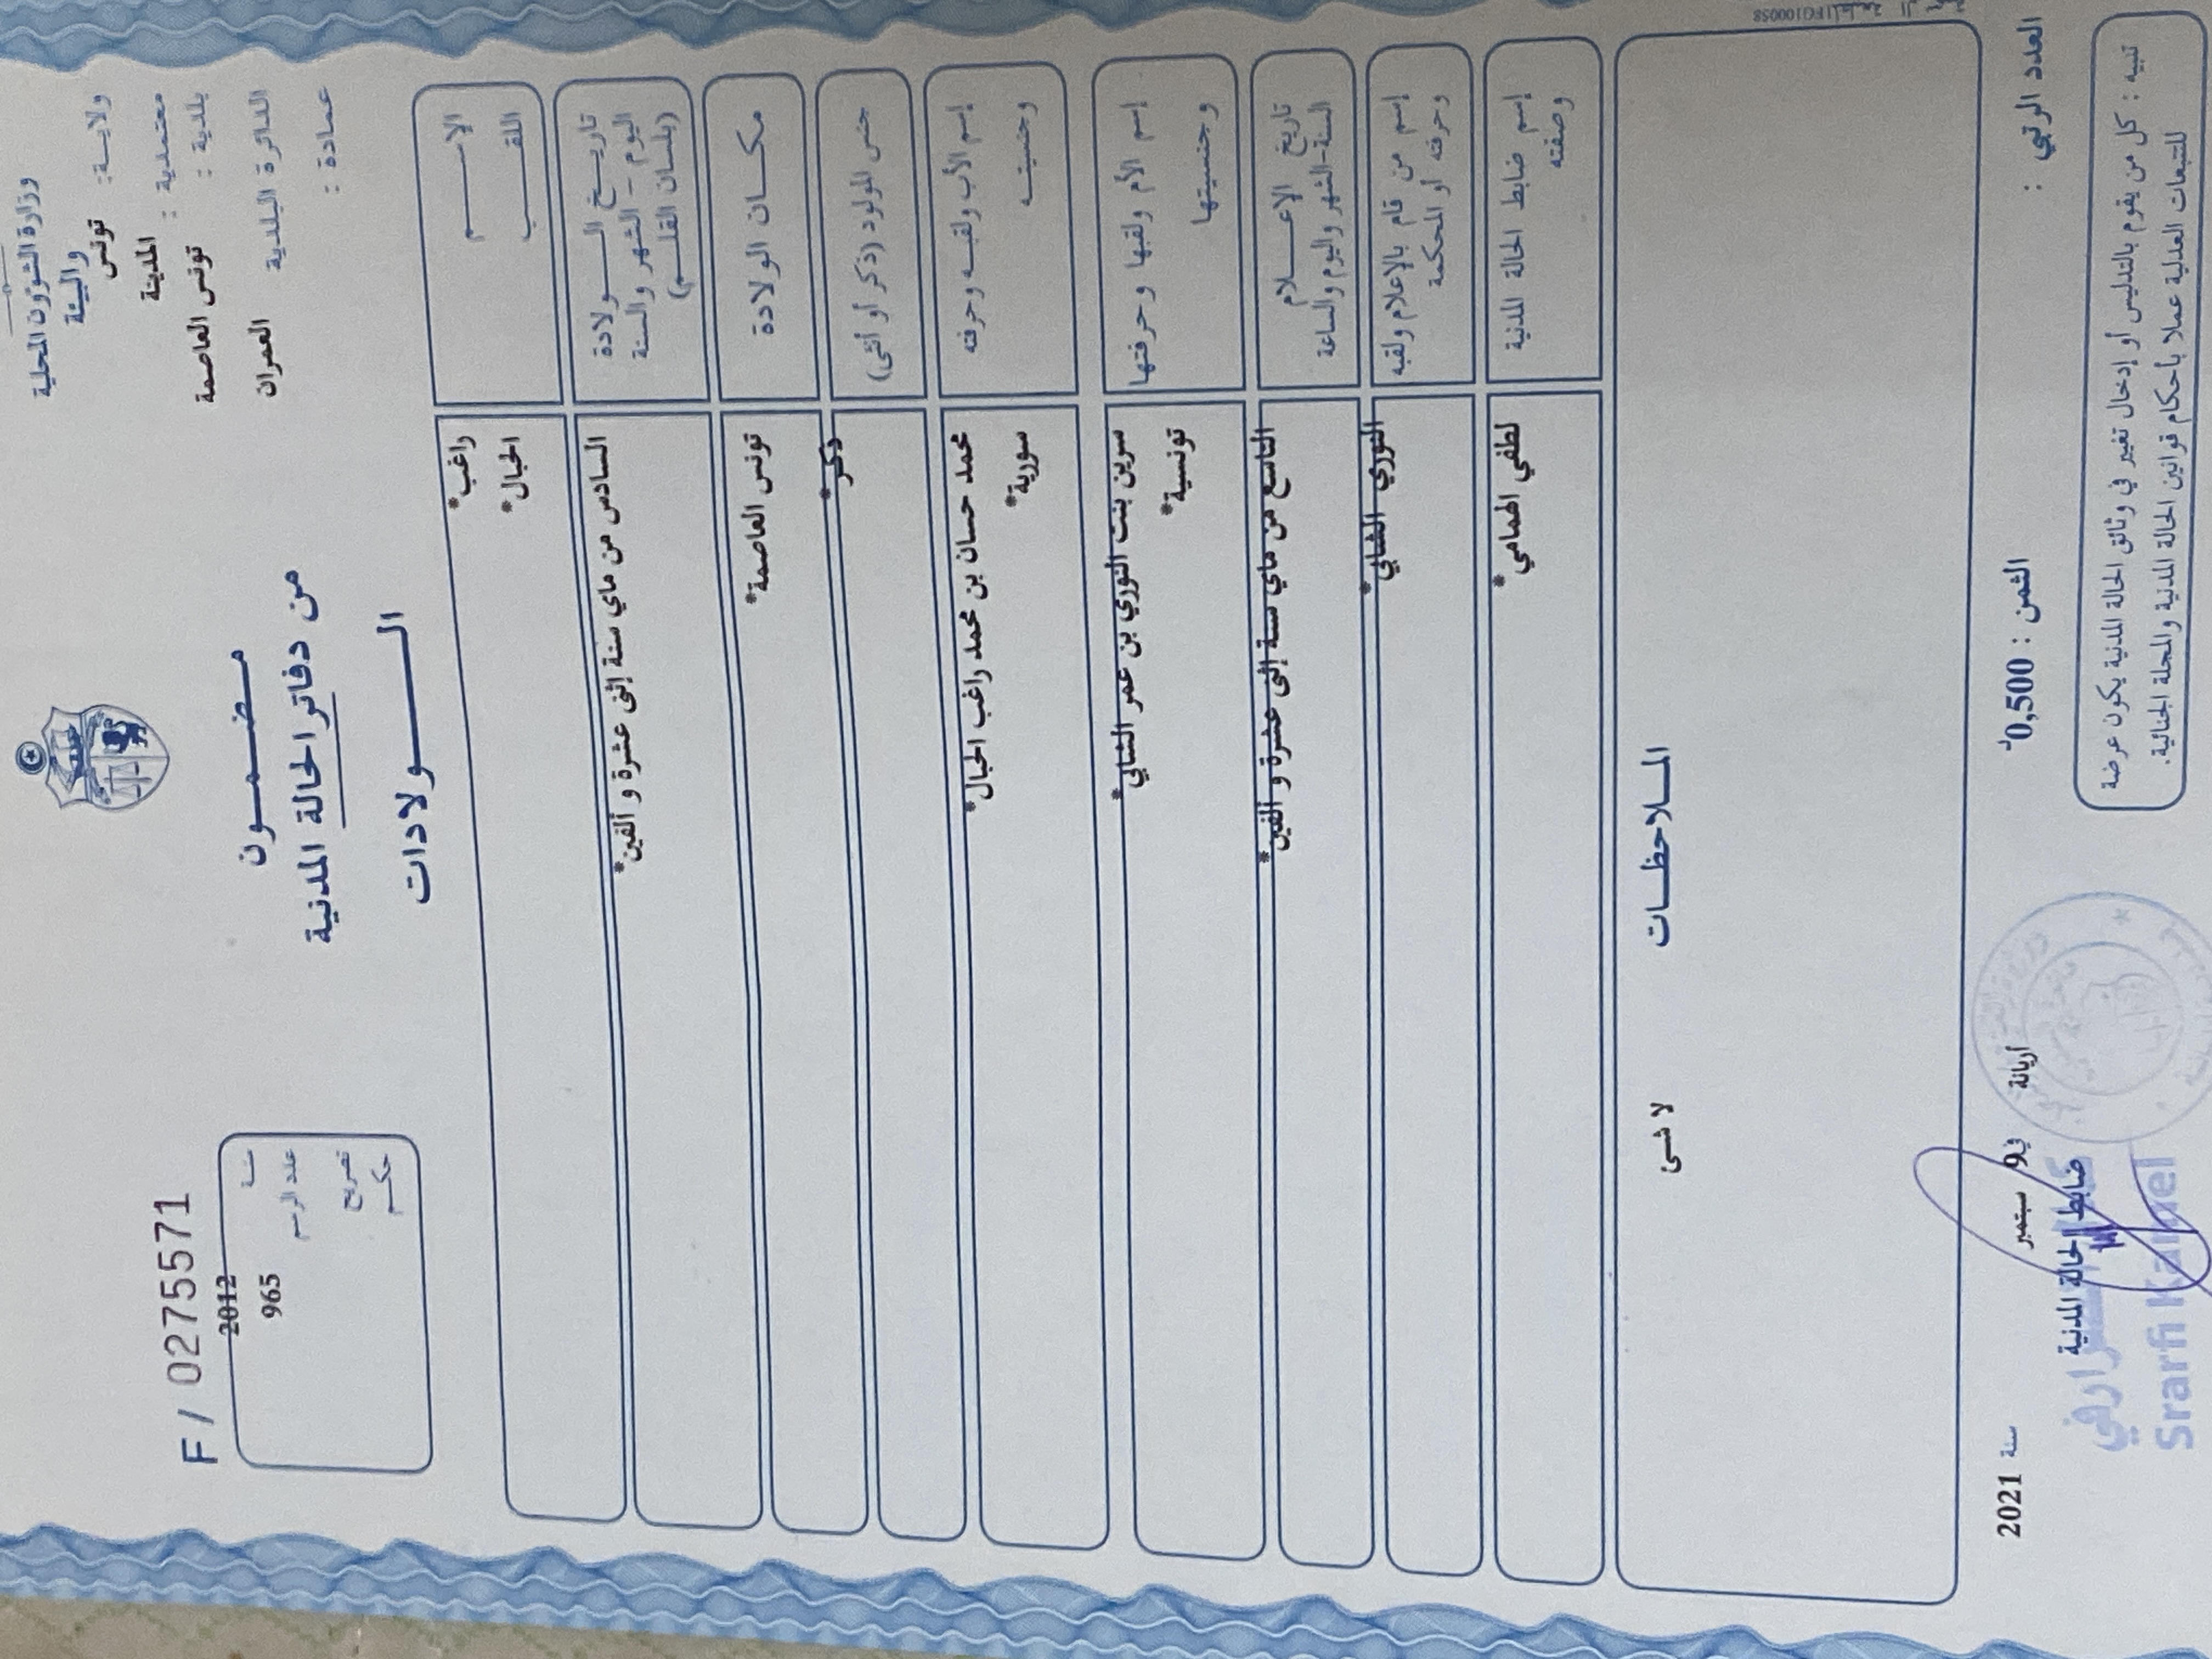 وزارة الشؤون المحلية
والبيئة
ولايـــة: تونس
معتمدية : المدينة
بلدية : تونس العاصمة
الدائرة البلدية العمران
عمادة :
F / 0275571
سنة 2012
عدد الرسم 965
تصريح
حكم
مـضـمـــون
من دفاتر الحالة المدنية
الـــــولادات
الإســـــم راغب*
اللقـــب الحبال*
تاريـــخ الـــــولادة
اليوم - الشهر والسنة
(بلسان القلـــم)
السادس من ماي سنة إثنى عشرة و ألفين*
مكـــان الولادة تونس العاصمة*
جنس المولود (ذكر أو أنثى) ذكر*
إسم الأب ولقبـــه وحرفته محمد حسان بن محمد راغب الحبال*
وجنسيتـــه سورية*
إسم الأم ولقبها وحرفتها سرين بنت النوري بن عمر الشابي*
وجنسيتها تونسية*
تاريخ الإعـــلام
السنة-الشهر واليوم والساعة
التاسع من ماي سنة إثنى عشرة و ألفين*
إسم من قام بالإعلام ولقبه
وحرفته أو المحكمة
النوري الشابي*
إسم ضابط الحالة المدنية
وصفته
لطفي الهمامي*
المـــلاحظـــات
لا شىء
العدد الرتبي :
الثمن : 0,500د
أريانة في 9 سبتمبر سنة 2021
ضابط الحالة المدنية
Srarfi Kamel
تنبيه : كل من يقوم بالتدليس أو إدخال تغيير في وثائق الحالة المدنية يكون عرضة
للتتبعات العدلية عملا بأحكام قوانين الحالة المدنية والمجلة الجنائية.